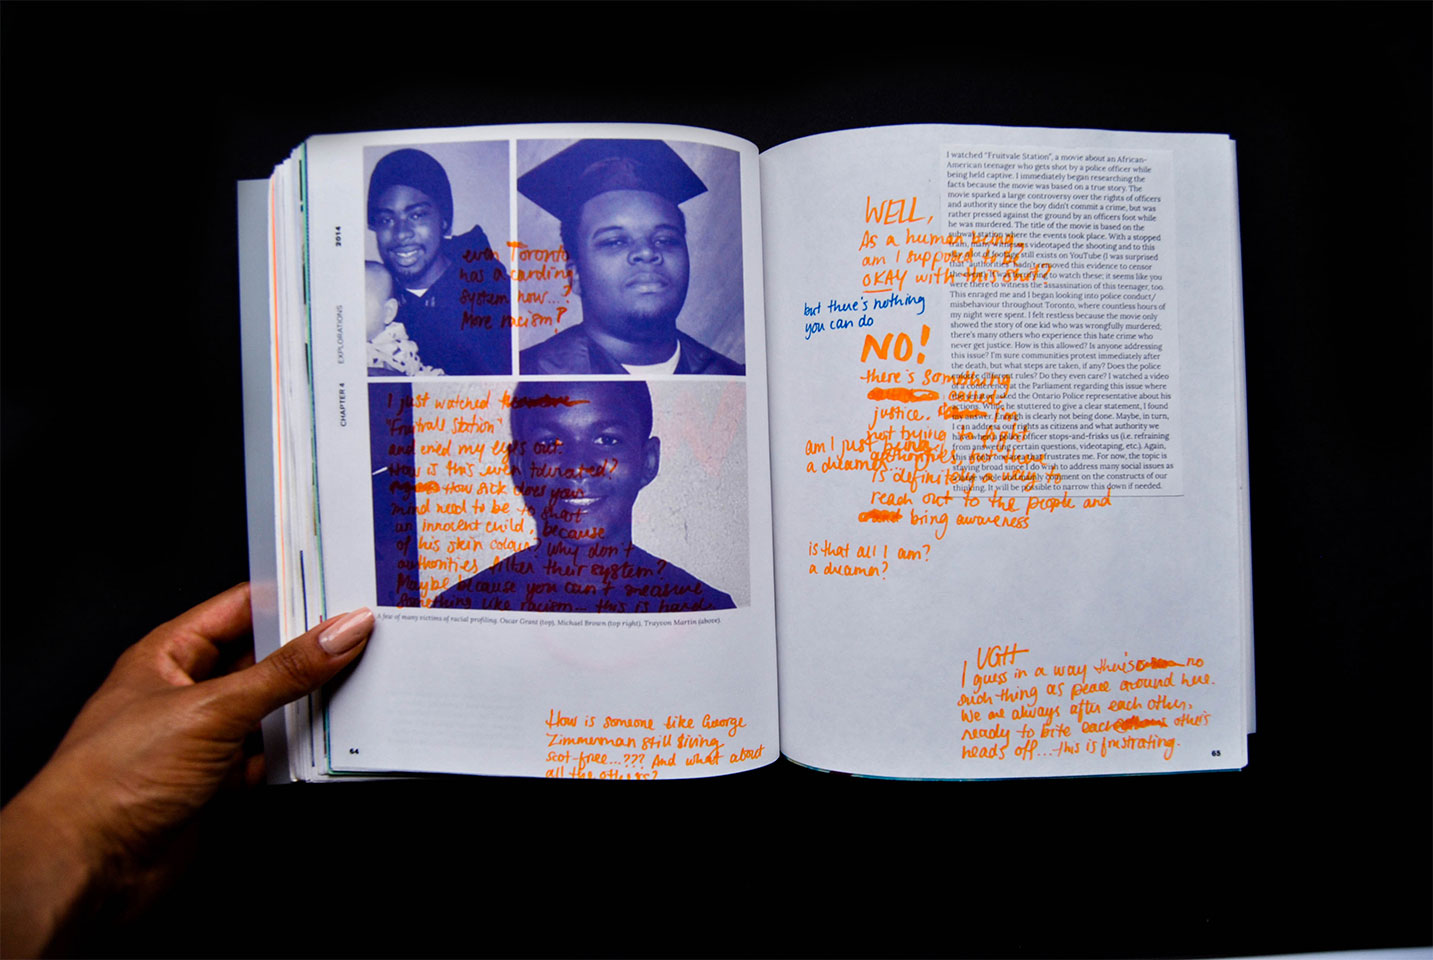 2014
EXPLORATIONS
CHAPTER 4
even Toronto
has a carding
system now...?
More racism?
I just watched
"Fruitvall Station"
and cried my eyes out.
How is this even tolerated?
How sick does your
mind need to be to shoot
an innocent child, because
of his skin colour? Why don't
authorities filter their system?
Maybe because you can't measure
something like racism... this is hard.
A few of many victims of racial profiling. Oscar Grant (top), Michael Brown (top right), Trayvon Martin (above).
How is someone like George
Zimmerman still living
scot-free...??? And what about
all the others?
64
I watched "Fruitvale Station", a movie about an African-
American teenager who gets shot by a police officer while
being held captive. I immediately began researching the
facts because the movie was based on a true story. The
movie sparked a large controversy over the rights of officers
and authority since the boy didn't commit a crime, but was
rather pressed against the ground by an officers foot while
he was murdered. The title of the movie is based on the
subway station where the events took place. With a stopped
train, many witnesses videotaped the shooting and to this
still exists on YouTube (I was surprised
that "authorities" hadn't removed this evidence to censor
to witness it; it seems like you
were there to witness the assassination of this teenager, too.
This enraged me and I began looking into police conduct/
misbehaviour throughout Toronto, where countless hours of
my night were spent. I felt restless because the movie only
showed the story of one kid who was wrongfully murdered;
there's many others who experience this hate crime who
never get justice. How is this allowed? Is anyone addressing
this issue? I'm sure communities protest immediately after
the death, but what steps are taken, if any? Does the police
different rules? Do they even care? I watched a video
of a conference at the Parliament regarding this issue where
asked the Ontario Police representative about his
actions. While he stuttered to give a clear statement, I found
my answer. Enough is clearly not being done. Maybe, in turn,
I can address our rights as citizens and what authority we
have when a police officer stops-and-frisks us (i.e. refraining
from answering certain questions, videotaping, etc.). Again,
this is that frustrates me. For now, the topic is
staying broad since I do wish to address many social issues as
comment on the constructs of our
thinking. It will be possible to narrow this down if needed.
WELL,
As a human being,
am I supposed to be
OKAY with this shit?
but there's nothing
you can do
NO!
there's something
called
justice. I'm
not trying to fight
authorities, but there
is definitely a way to
reach out to the people and
bring awareness
am I just being
a dreamer...
is that all I am?
a dreamer?
UGH
I guess in a way there's no
such thing as peace around here.
We are always after each other,
ready to bite each others
heads off... this is frustrating.
65